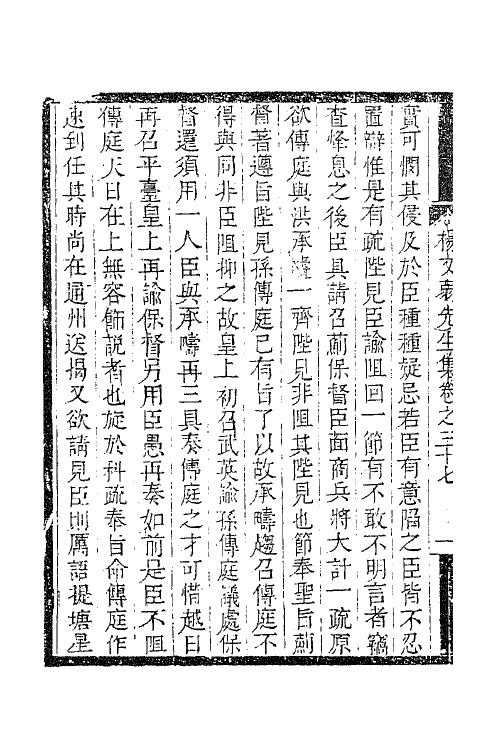 楊文襄先生集卷之三十七
一
實可憫其侵及於臣種種疑忌若臣有意陷之臣皆不忍
置辯惟是有疏陛見臣諭阻回一節有不敢不明言者竊
查烽息之後臣具請召薊保督臣面商兵將大計一疏原
欲傳庭與洪承疇一齊陛見非阻其陛見也節奉聖旨薊
督著遵旨陛見孫傳庭已有旨了以故承疇趨召傳庭不
得與同非臣阻抑之故皇上初召武英諭孫傳庭議處保
督還須用一人臣與承疇再三具奏傳庭之才可惜越日
再召平臺皇上再諭保督另用臣愚再奏如前是臣不阻
傳庭天日在上無容飾説者也旋於科疏奉旨命傳庭作
速到任其時尚在通州送揭又欲請見臣則厲語提塘星